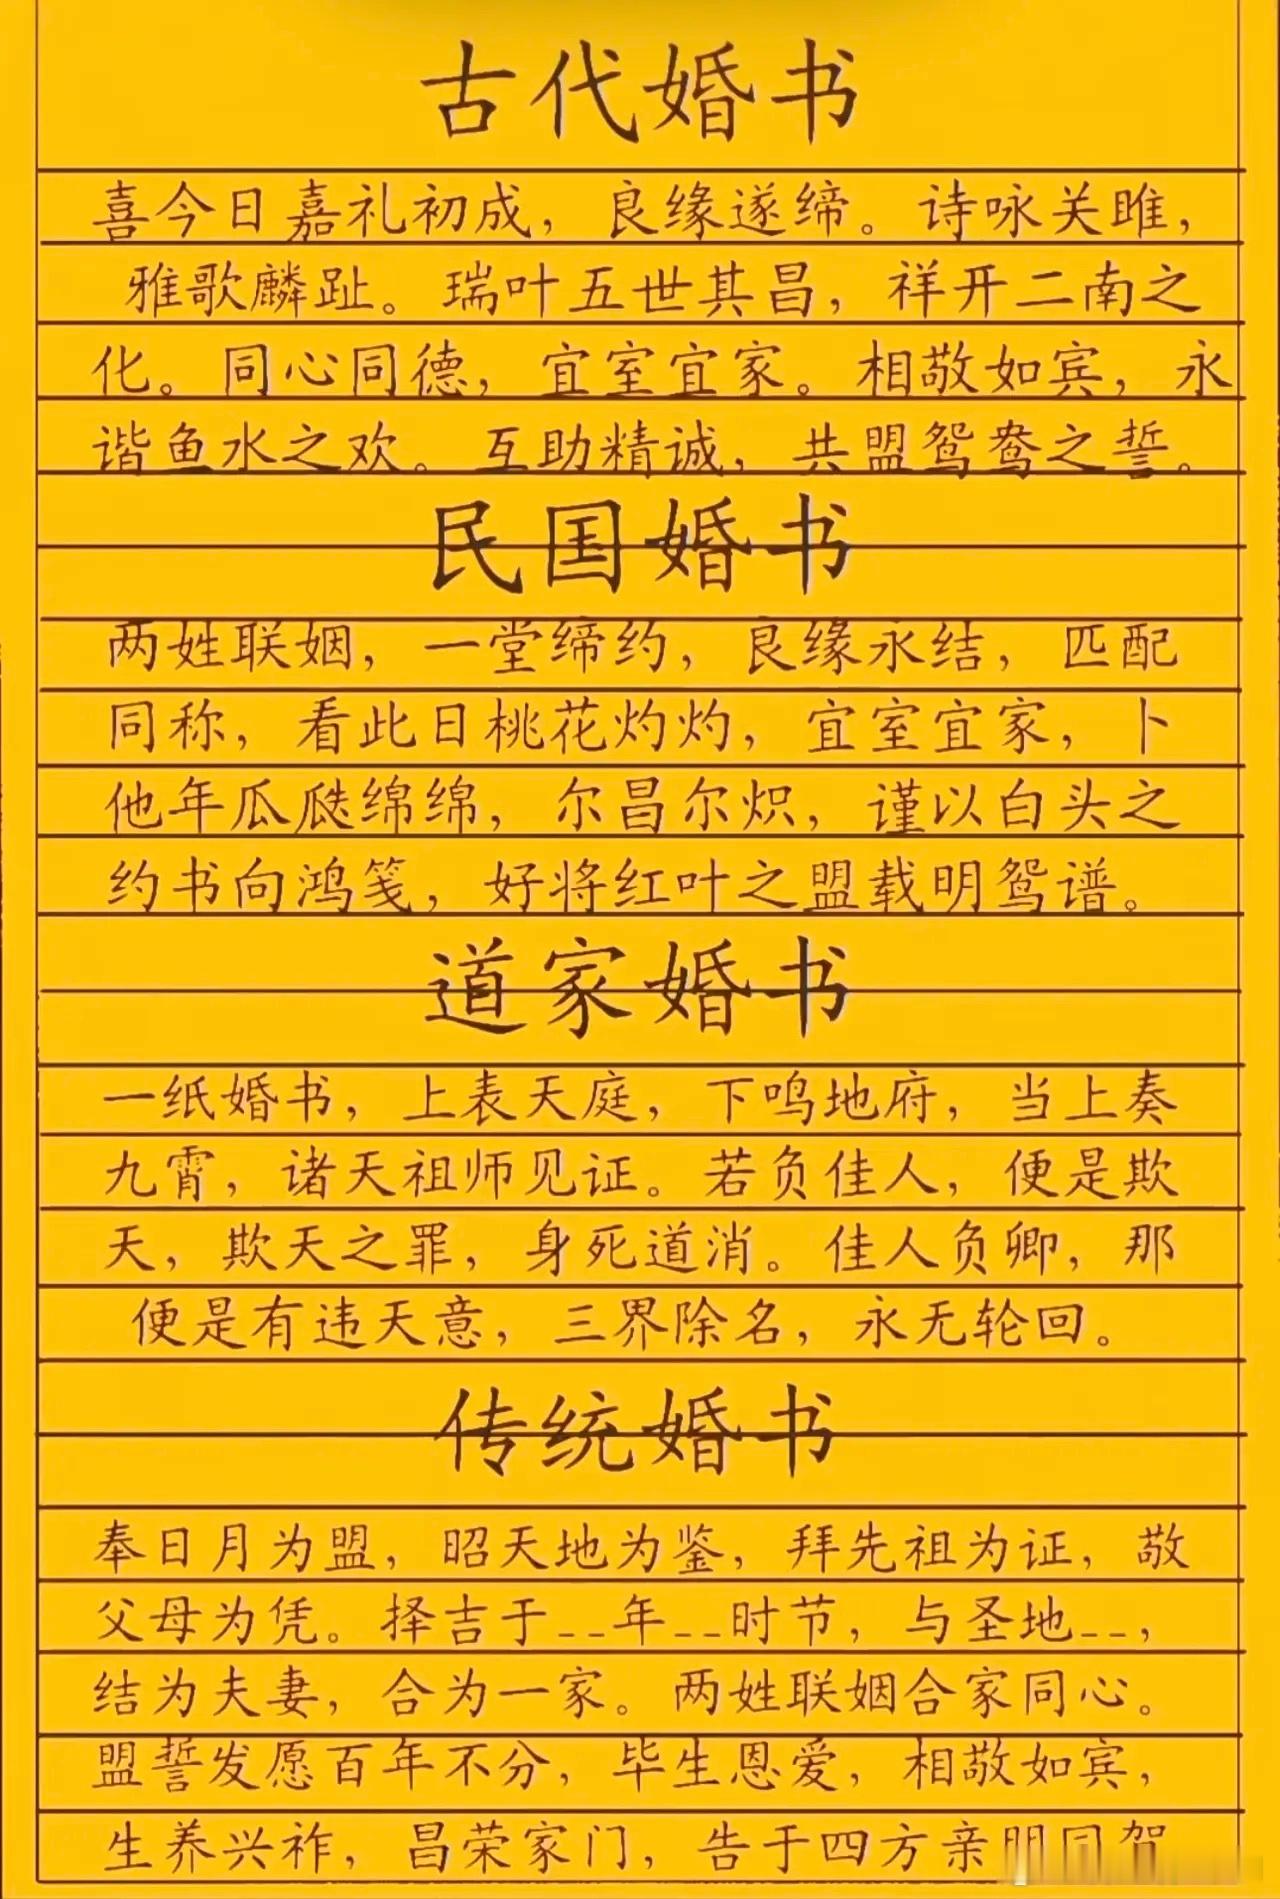 古代婚书
喜今日嘉礼初成，良缘遂缔。诗咏关雎，
雅歌麟趾。瑞叶五世其昌，祥开二南之
化。同心同德，宜室宜家。相敬如宾，永
谐鱼水之欢。互助精诚，共盟鸳鸯之誓。
民国婚书
两姓联姻，一堂缔约，良缘永结，匹配
同称，看此日桃花灼灼，宜室宜家，卜
他年瓜瓞绵绵，尔昌尔炽，谨以白头之
约书向鸿笺，好将红叶之盟载明鸳谱。
道家婚书
一纸婚书，上表天庭，下鸣地府，当上奏
九霄，诸天祖师见证。若负佳人，便是欺
天，欺天之罪，身死道消。佳人负卿，那
便是有违天意，三界除名，永无轮回。
传统婚书
奉日月为盟，昭天地为鉴，拜先祖为证，敬
父母为凭。择吉于__年__时节，与圣地__，
结为夫妻，合为一家。两姓联姻合家同心。
盟誓发愿百年不分，毕生恩爱，相敬如宾，
生养兴祚，昌荣家门，告于四方亲朋同贺